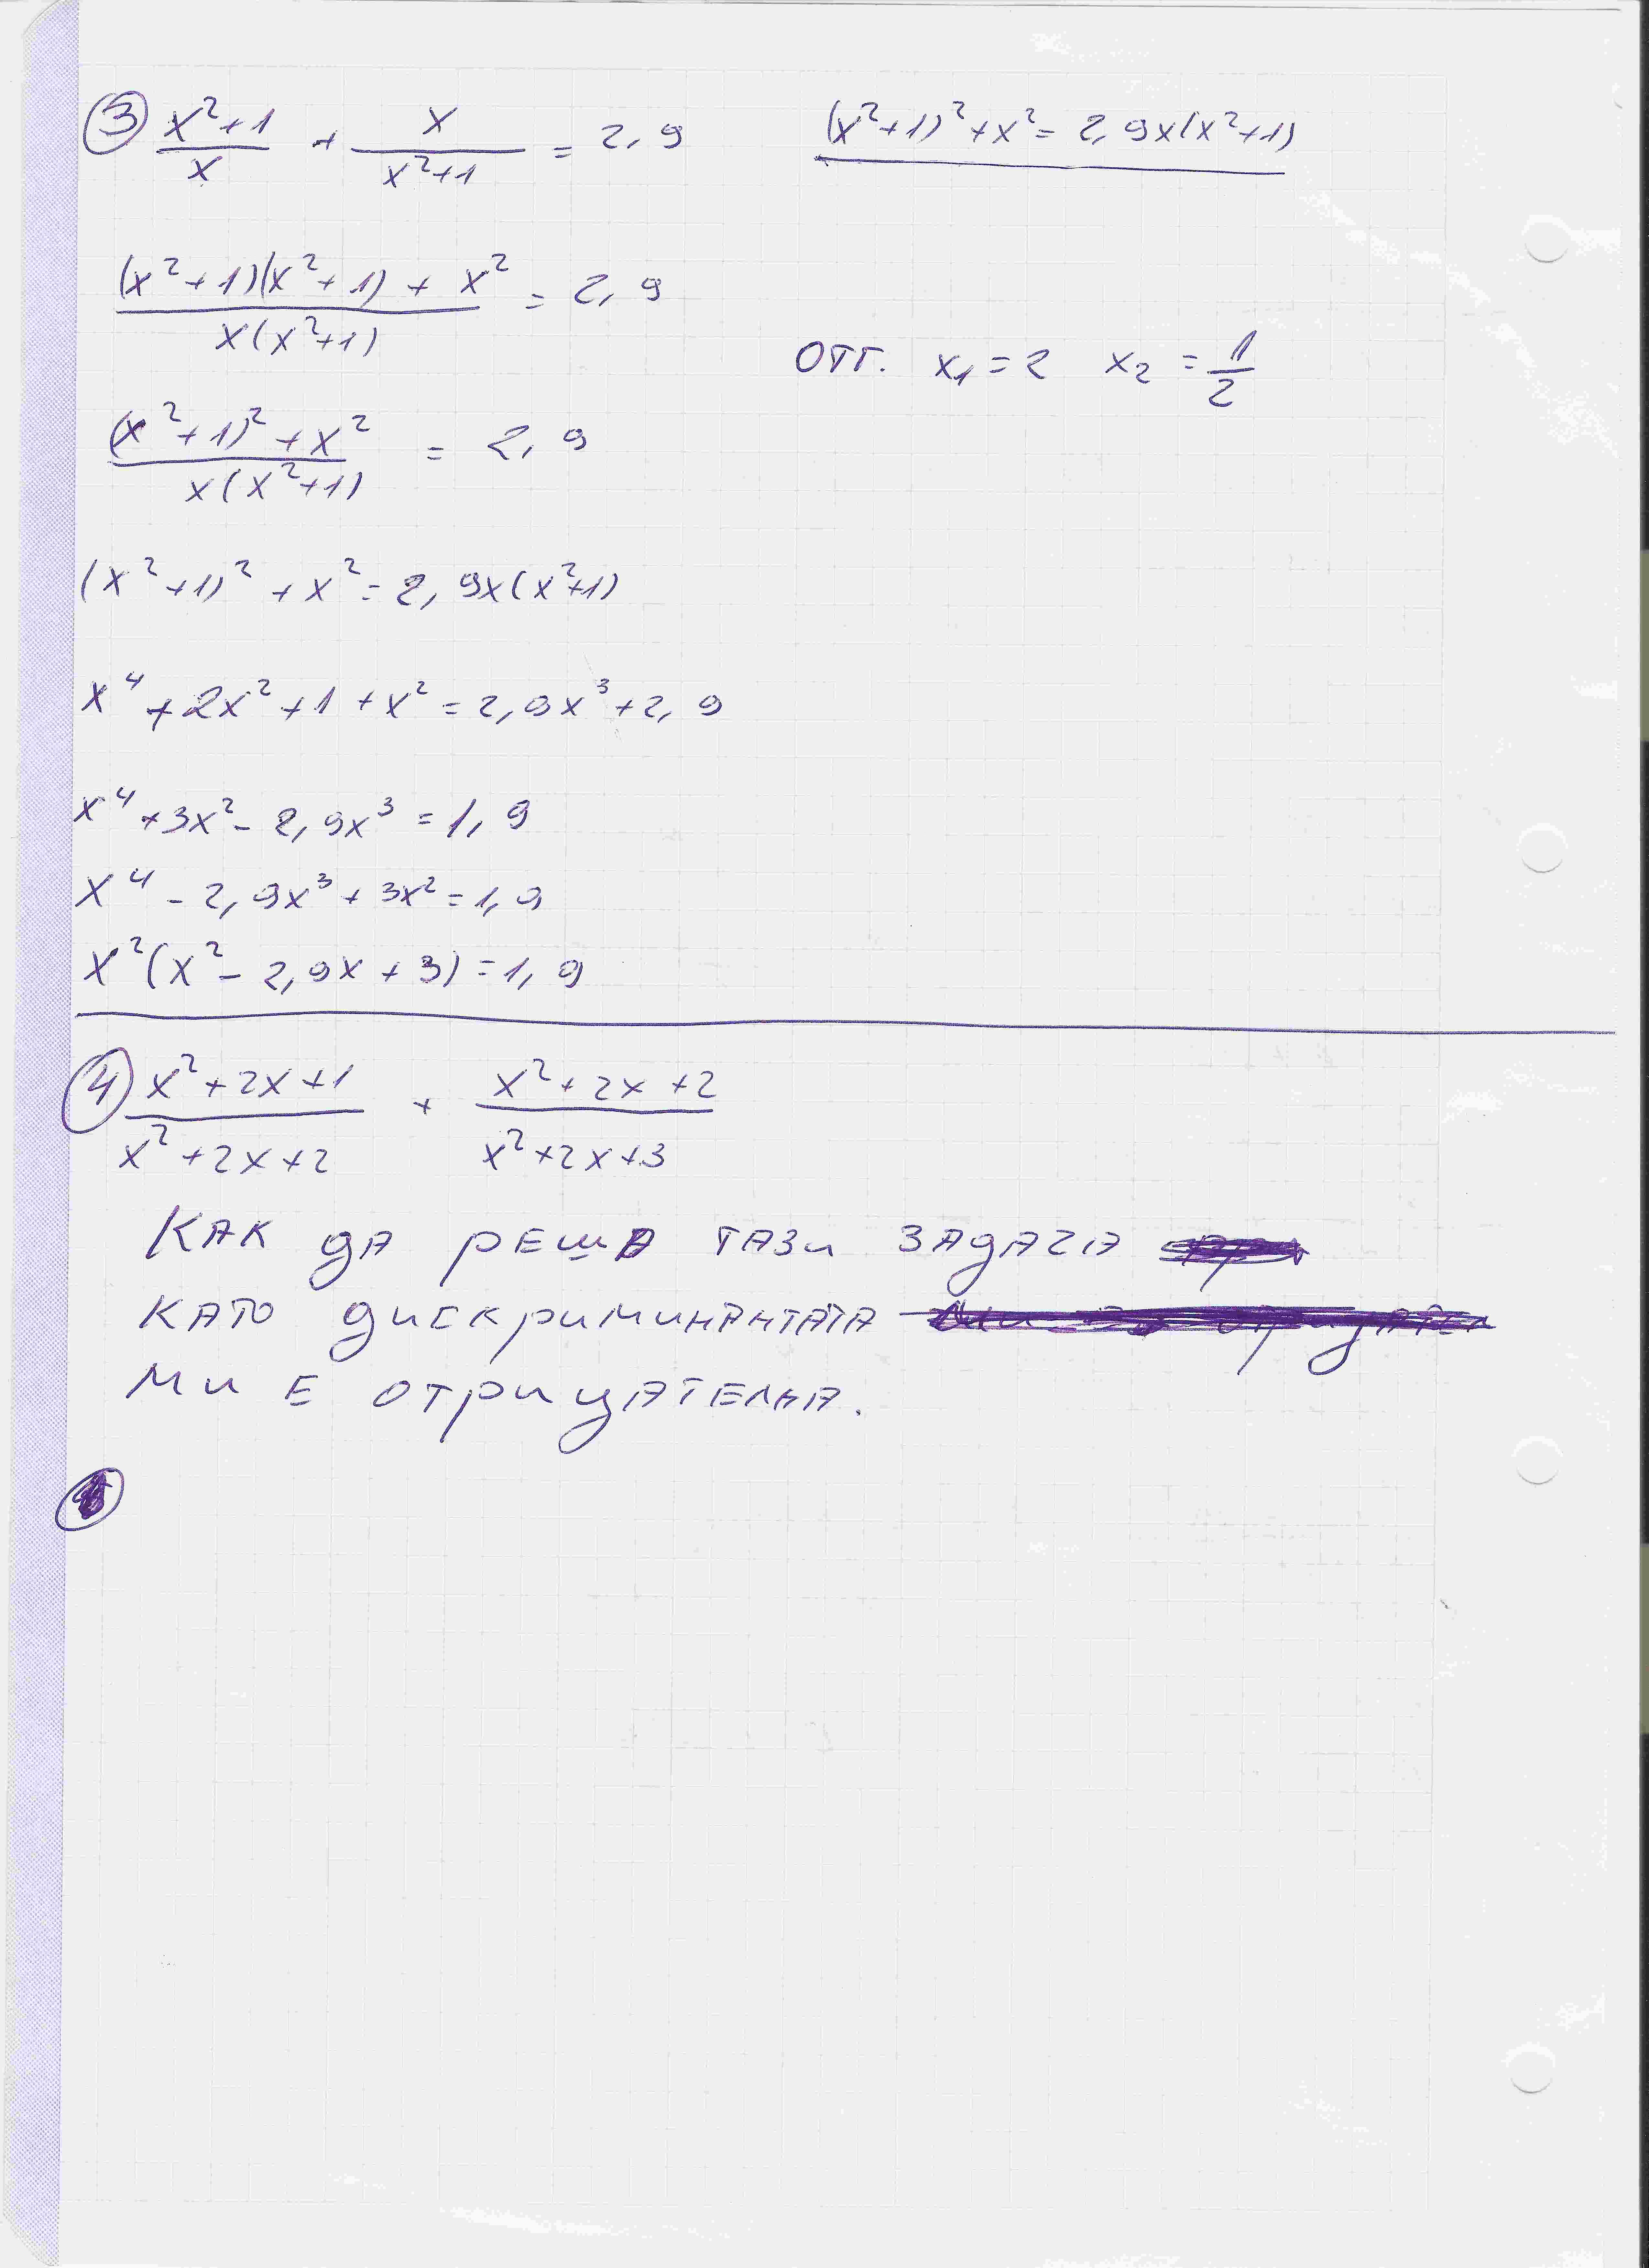 ③ (x²+1)/x + x/(x²+1) = 2,9
(x²+1)²+x² = 2,9x(x²+1)
((x²+1)(x²+1) + x²)/(x(x²+1)) = 2,9
ОТГ. x₁ = 2 x₂ = 1/2
((x²+1)² + x²)/(x(x²+1)) = 2,9
(x²+1)² + x² = 2,9x(x²+1)
x⁴ + 2x² + 1 + x² = 2,9x³ + 2,9
x⁴ + 3x² - 2,9x³ = 1,9
x⁴ - 2,9x³ + 3x² = 1,9
x²(x² - 2,9x + 3) = 1,9
④ (x²+2x+1)/(x²+2x+2) + (x²+2x+2)/(x²+2x+3)
КАК ДА РЕША ТАЗИ ЗАДАЧА
КАТО ДИСКРИМИНАНТАТА
МИ Е ОТРИЦАТЕЛНА.